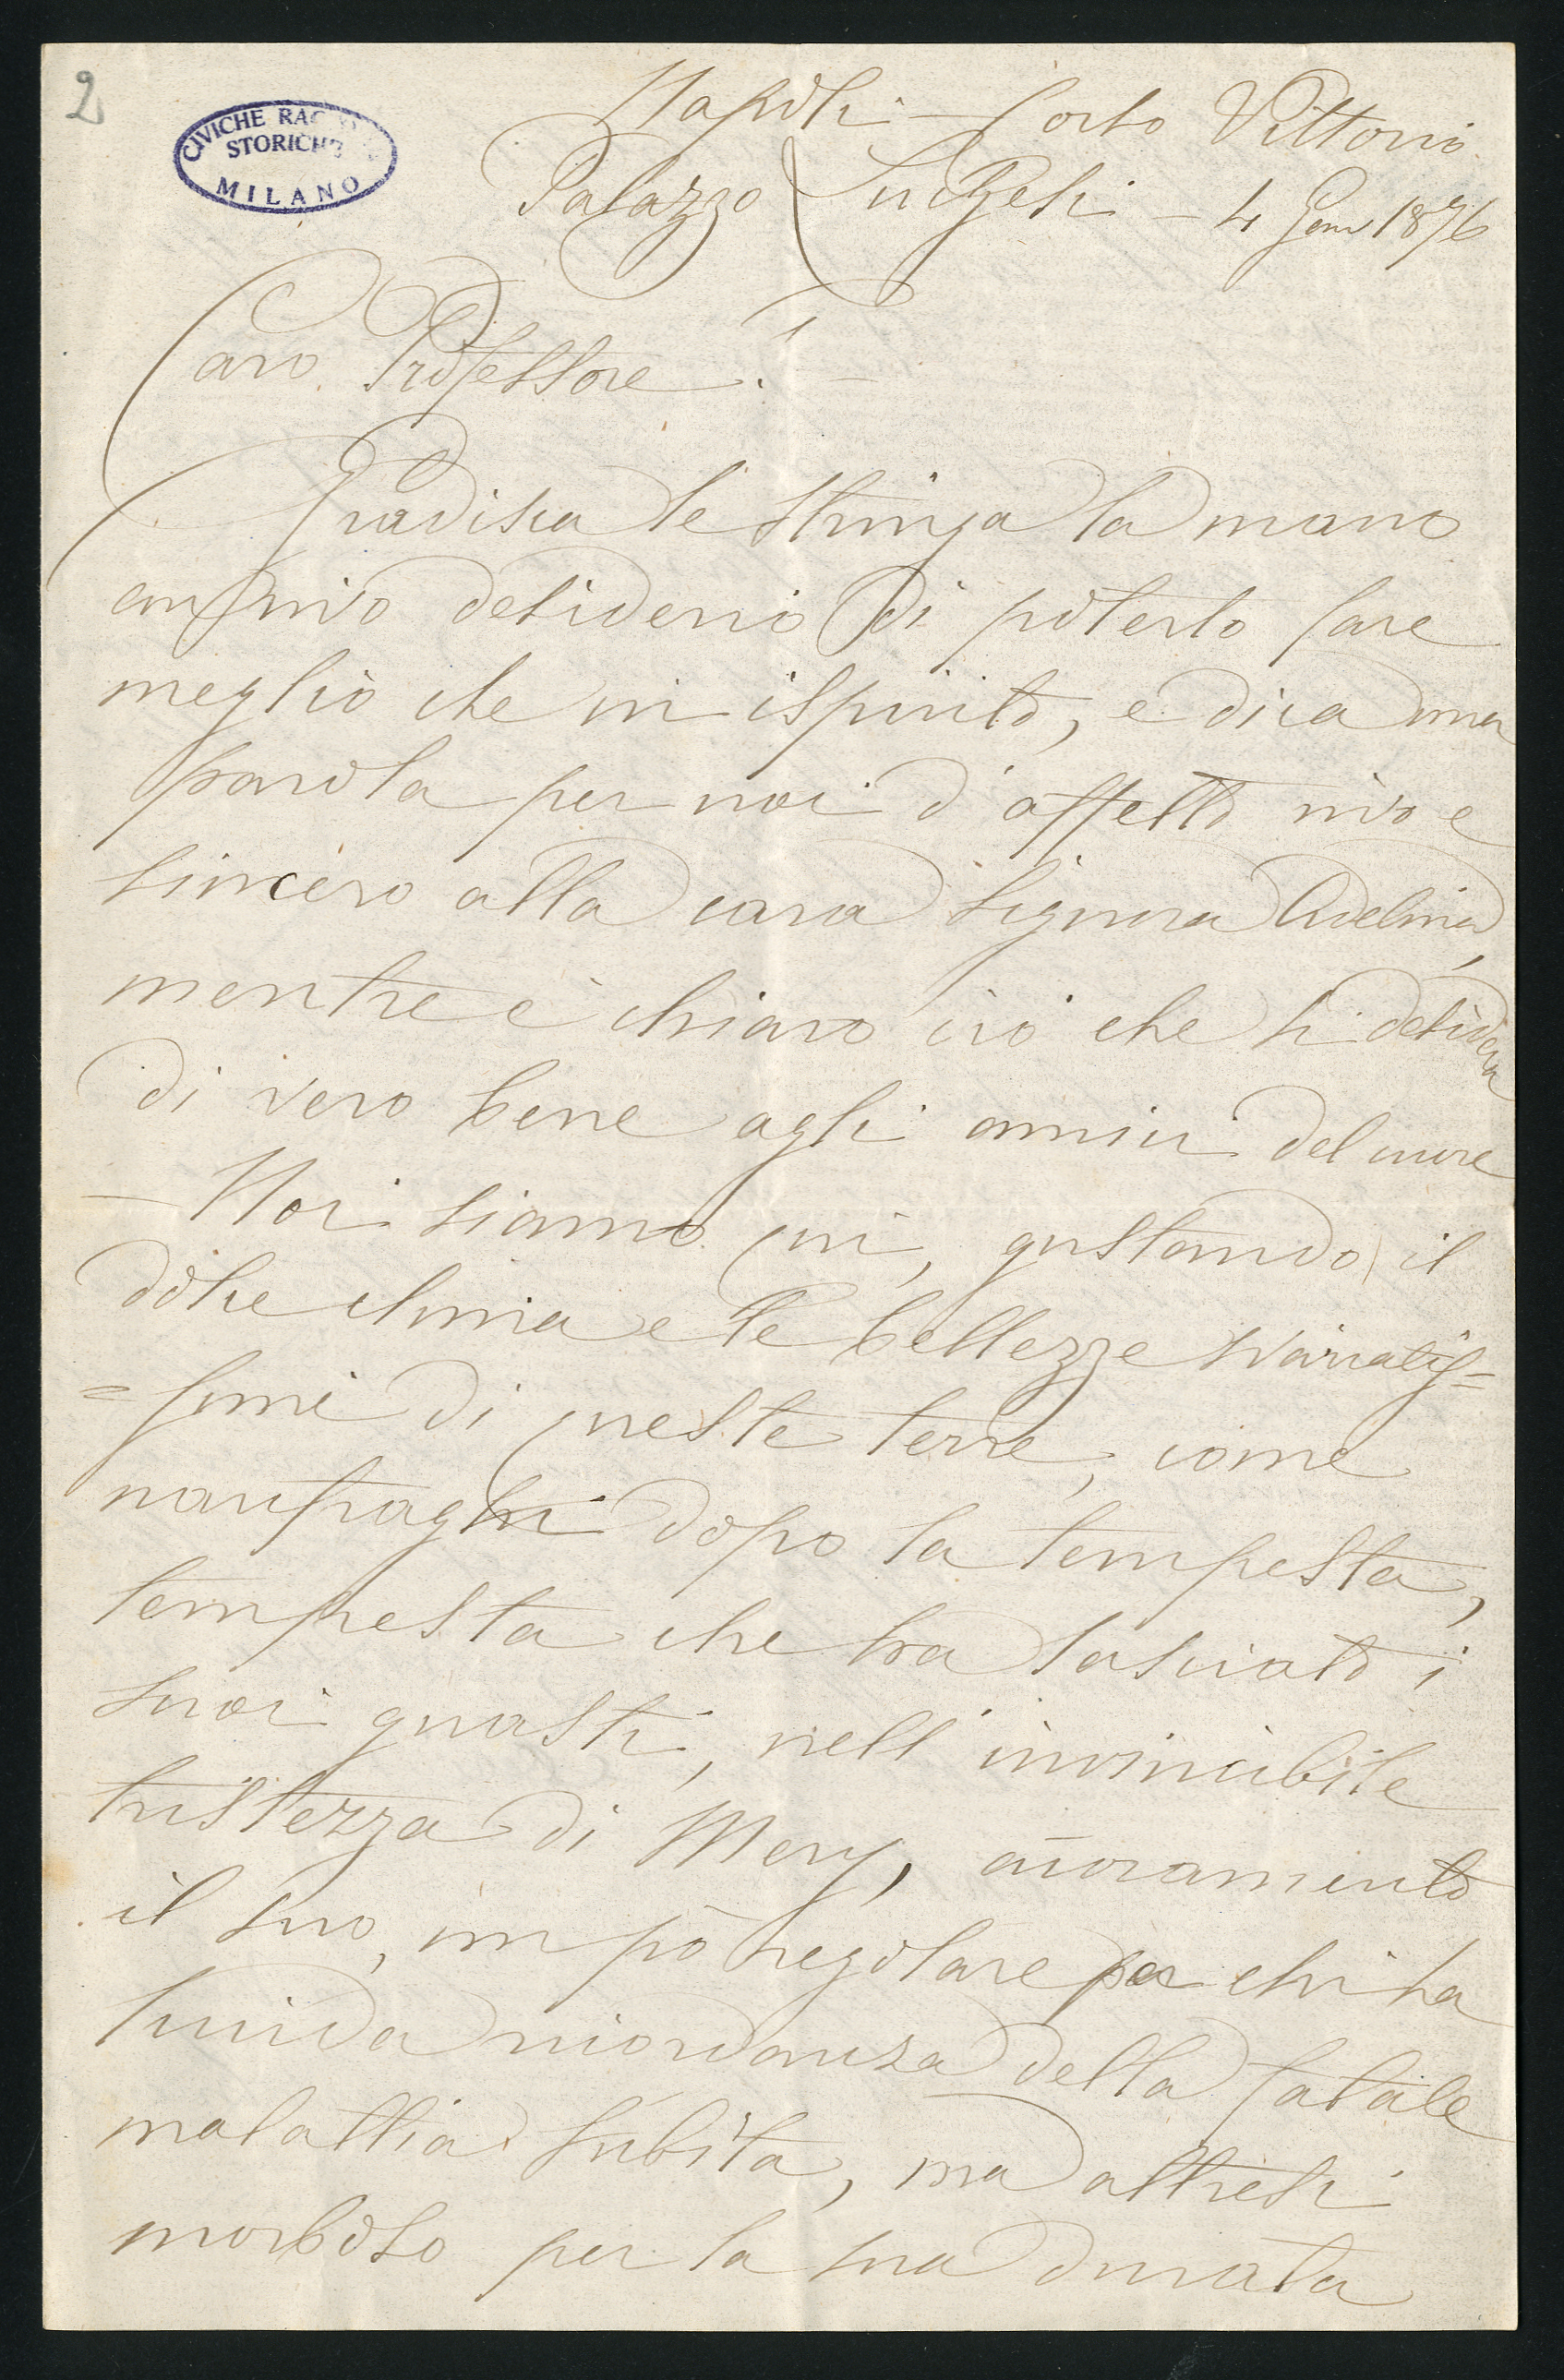 2
CIVICHE RACCOLTE
STORICHE
MILANO
Napoli Corso Vittorio
Palazzo - 4 Gen 1876
Caro Professore! -
Gradisca le stringa la mano
con vivo desiderio di poterlo fare
meglio che in ispirito, e dica una
parola per noi d'affetto vivo e
sincero alla cara Signora Adelina,
mentre è chiaro ciò che si desidera
di vero bene agli amici del cuore
- Noi siamo qui, gustando il
dolce clima e le bellezze svariatis=
=sime di queste terre, come
naufraghi dopo la tempesta,
tempesta che ha lasciato i
suoi guasti, nell'invincibile
tristezza di Mery, accoramento
il suo, un pò regolare per chi ha
lucida ricordanza della fatale
malattia subita, ma altresì
morboso per la sua durata